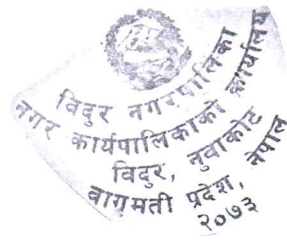 विदुर नगरपालिका
नगर कार्यपालिकाको कार्यालय
विदुर, नुवाकोट
वागमती प्रदेश, नेपाल
२०७३